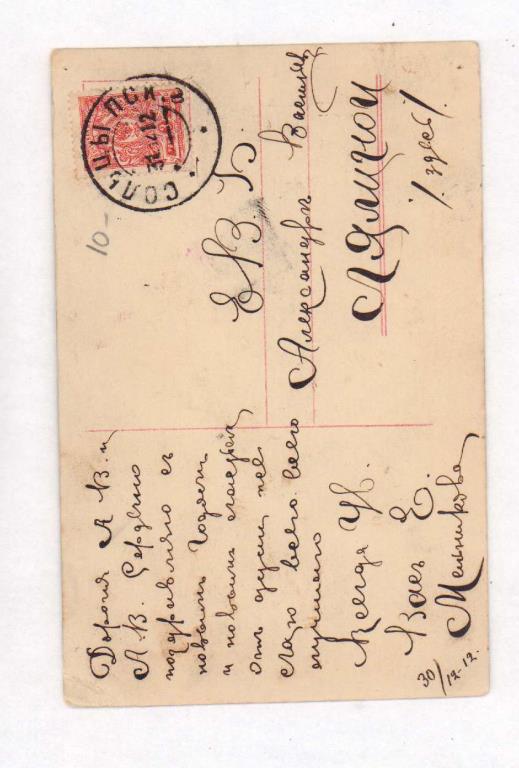 СОЛЬЦЫ ПСК.
31 12 12
10-
Е. В. Б.
Александрѣ Васильев
Лядминой
/здесь/.
Дорогия А. В. и
Л. В. Сердечно
поздравляю съ
новымъ Годомъ
и новымъ счастьем,
отъ души же
лаю всего всего
лучшаго
Всегда Ув.
Васъ Е.
Мельникова,
30/12-12.